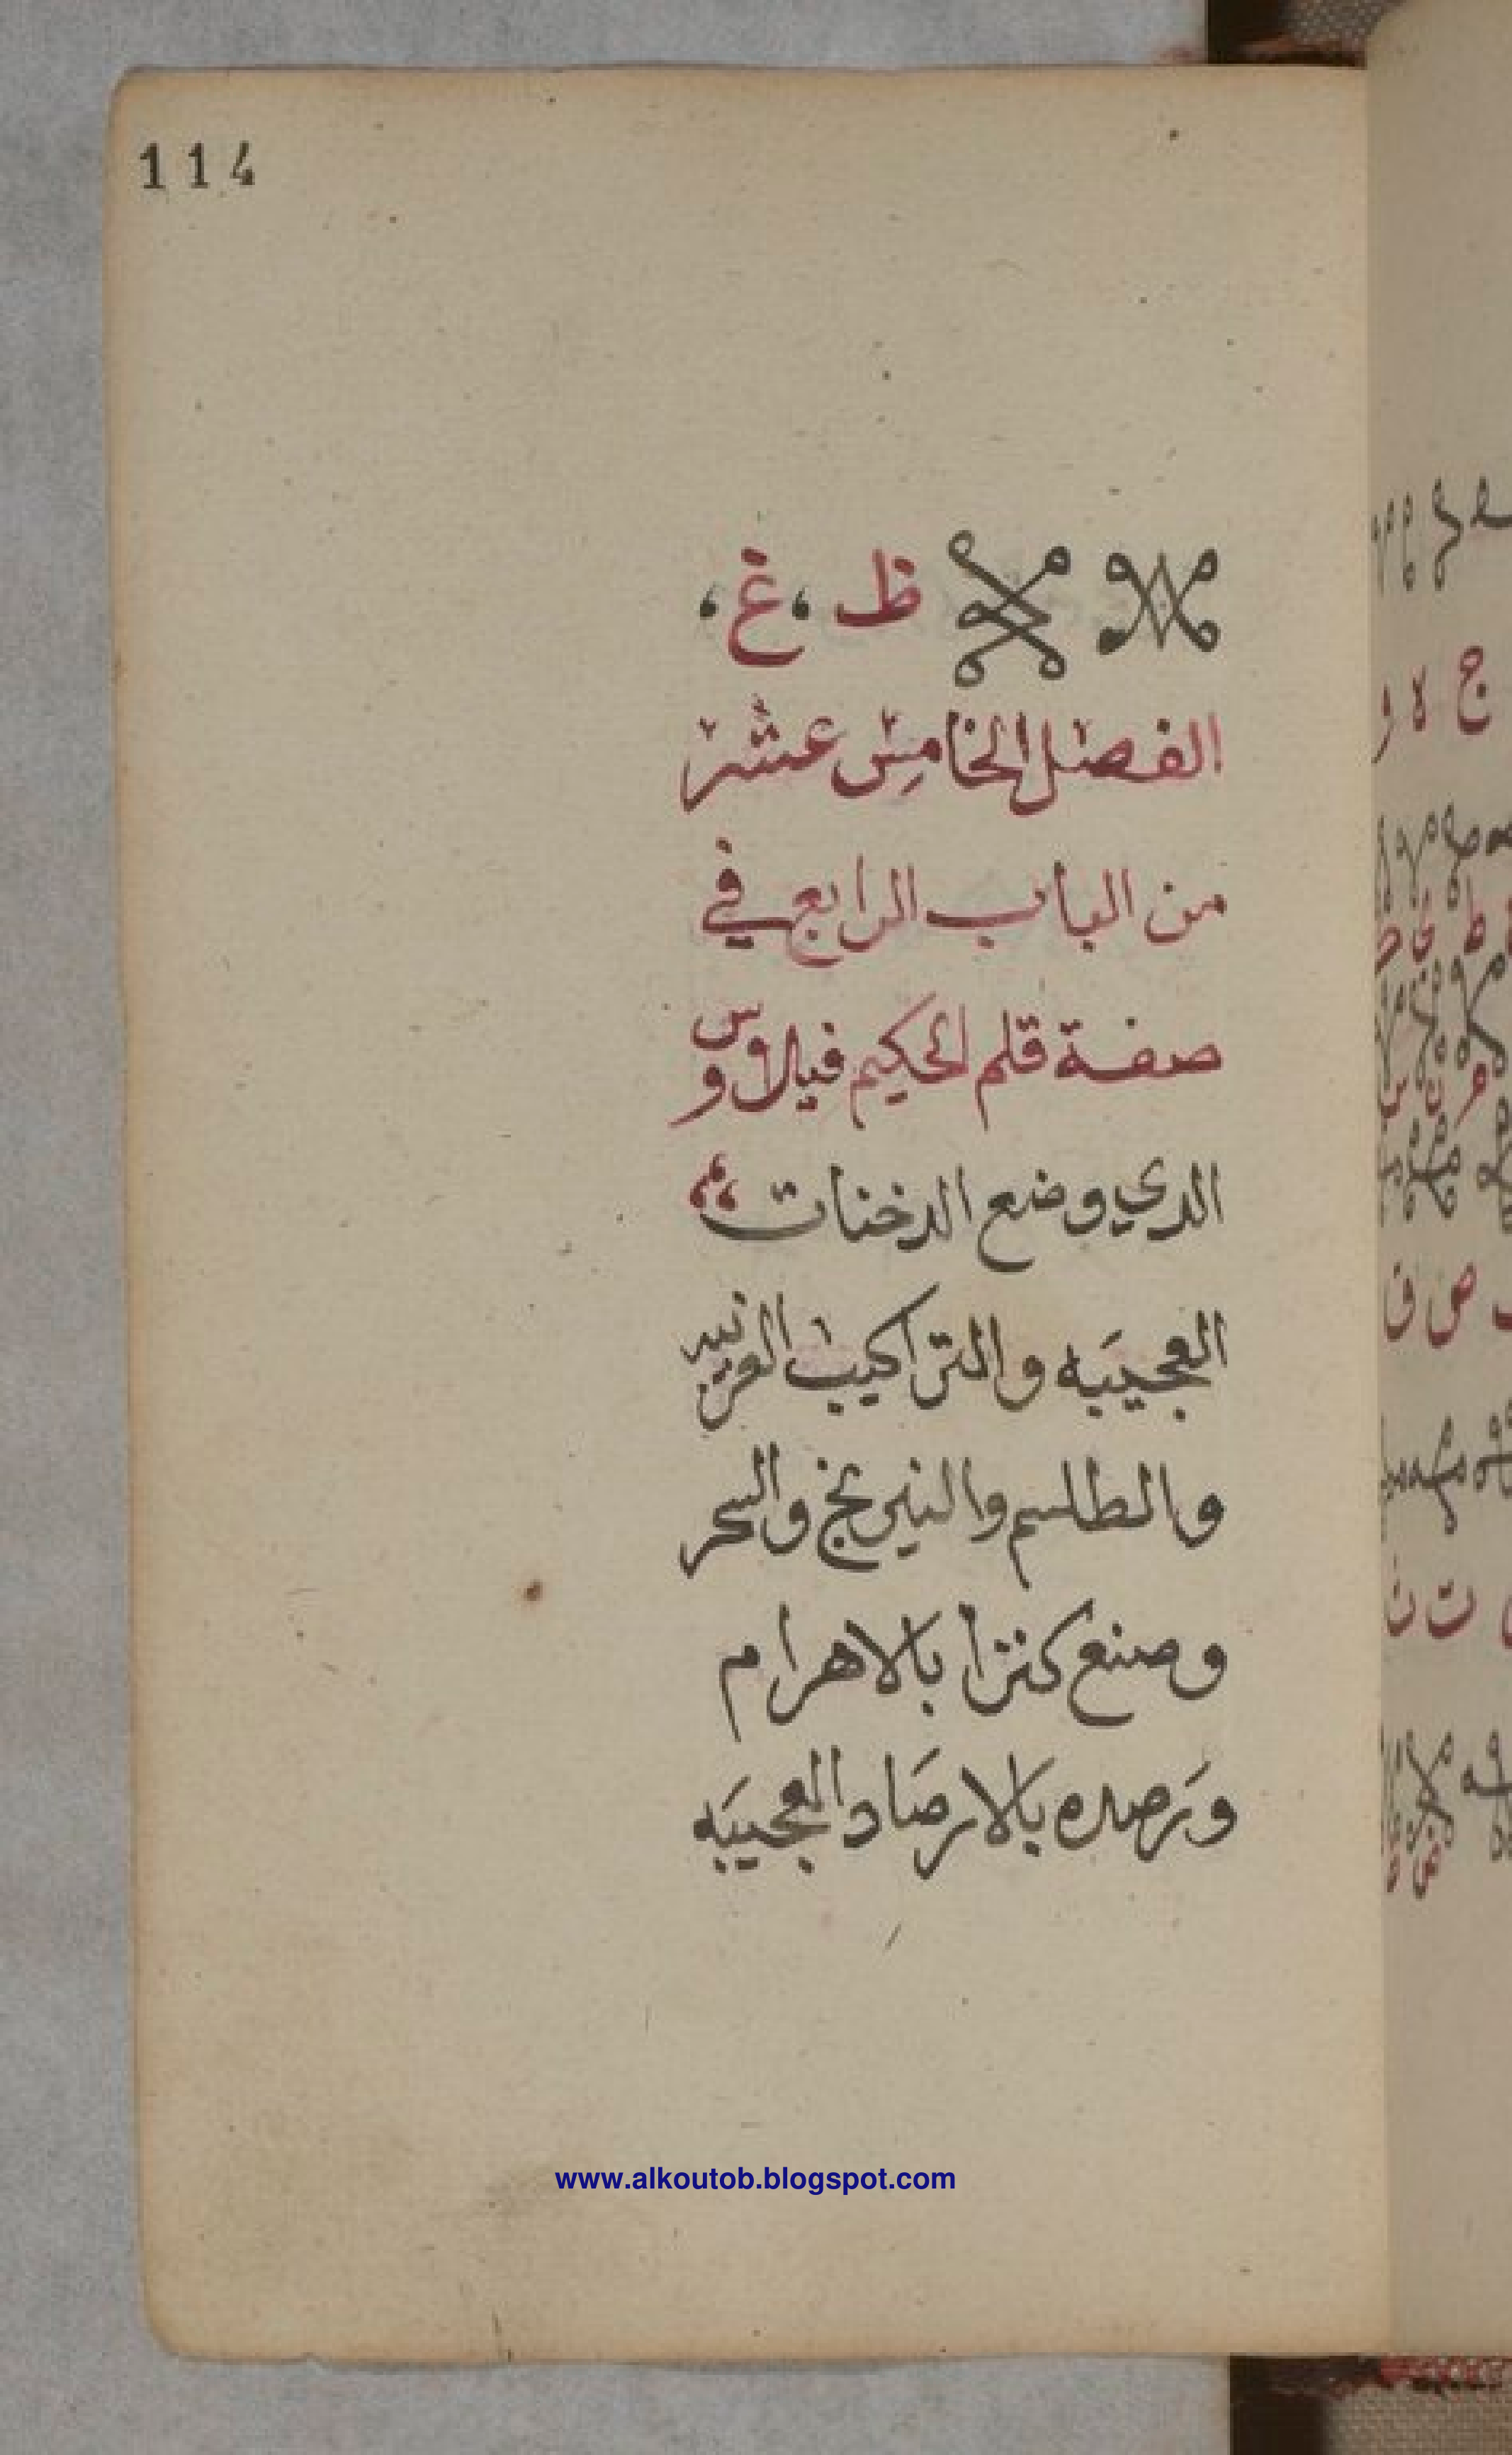 114
ظ، غ،
الفصل الخامس عشر
من الباب الرابع في
صفة قلم الحكيم فيلاوس
الدي وضع الدخنات
العجيبه والتراكيب الغريبه
والطلسم والنيرنج والسحر
وصنع كنزا بالاهرام
ورصده بالارصاد العجيبه
www.alkoutob.blogspot.com